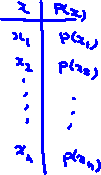 x p(x)
x₁ p(x₁)
x₂ p(x₂)
⋮ ⋮
xₙ p(xₙ)